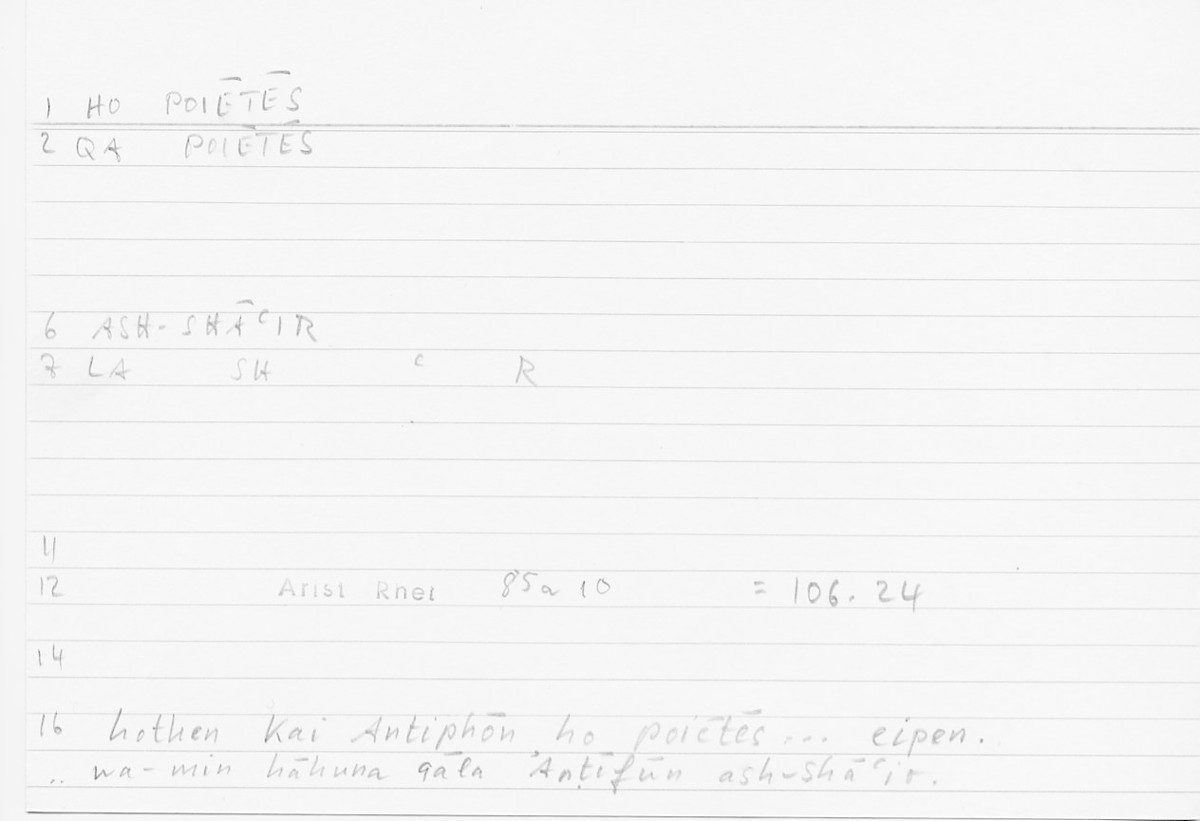 1 HO POIĒTĒS
2 QA POIĒTĒS
6 ASH-SHĀʿIR
7 LA SH ʿ R
11
12 Arist Rhet 85a 10 = 106. 24
14
16 hothen kai Antiphōn ho poiētēs ... eipen.
.. wa-min hāhunā qāla ʾAnṭīfūn ash-shāʿir.